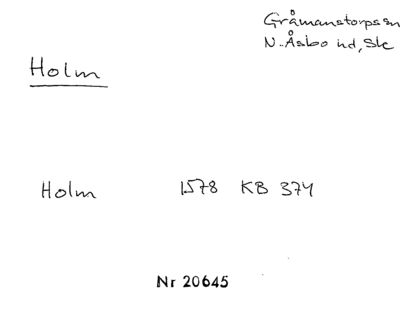 Gråmanstorps sn
N. Åsbo hd, Sk
Holm
Holm 1578 KB 374
Nr 20645